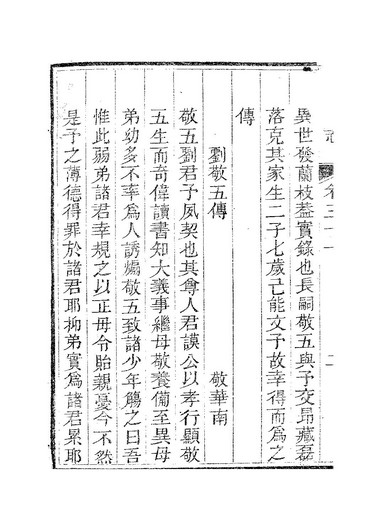 志　卷三十一　二
異世發蘭枝葢實錄也長嗣敬五與予交昂藏磊
落克其家生二子七歲已能文予故幸得而爲之
傳
劉敬五傳　敬華南
敬五劉君予夙契也其尊人君謨公以孝行顯敬
五生而奇偉讀書知大義事繼母敬養備至異母
弟幼多不率爲人誘煽敬五致諸少年觴之曰吾
惟此弱弟諸君幸規之以正毋令貽親憂今不然
是予之薄德得罪於諸君耶抑弟實爲諸君累耶